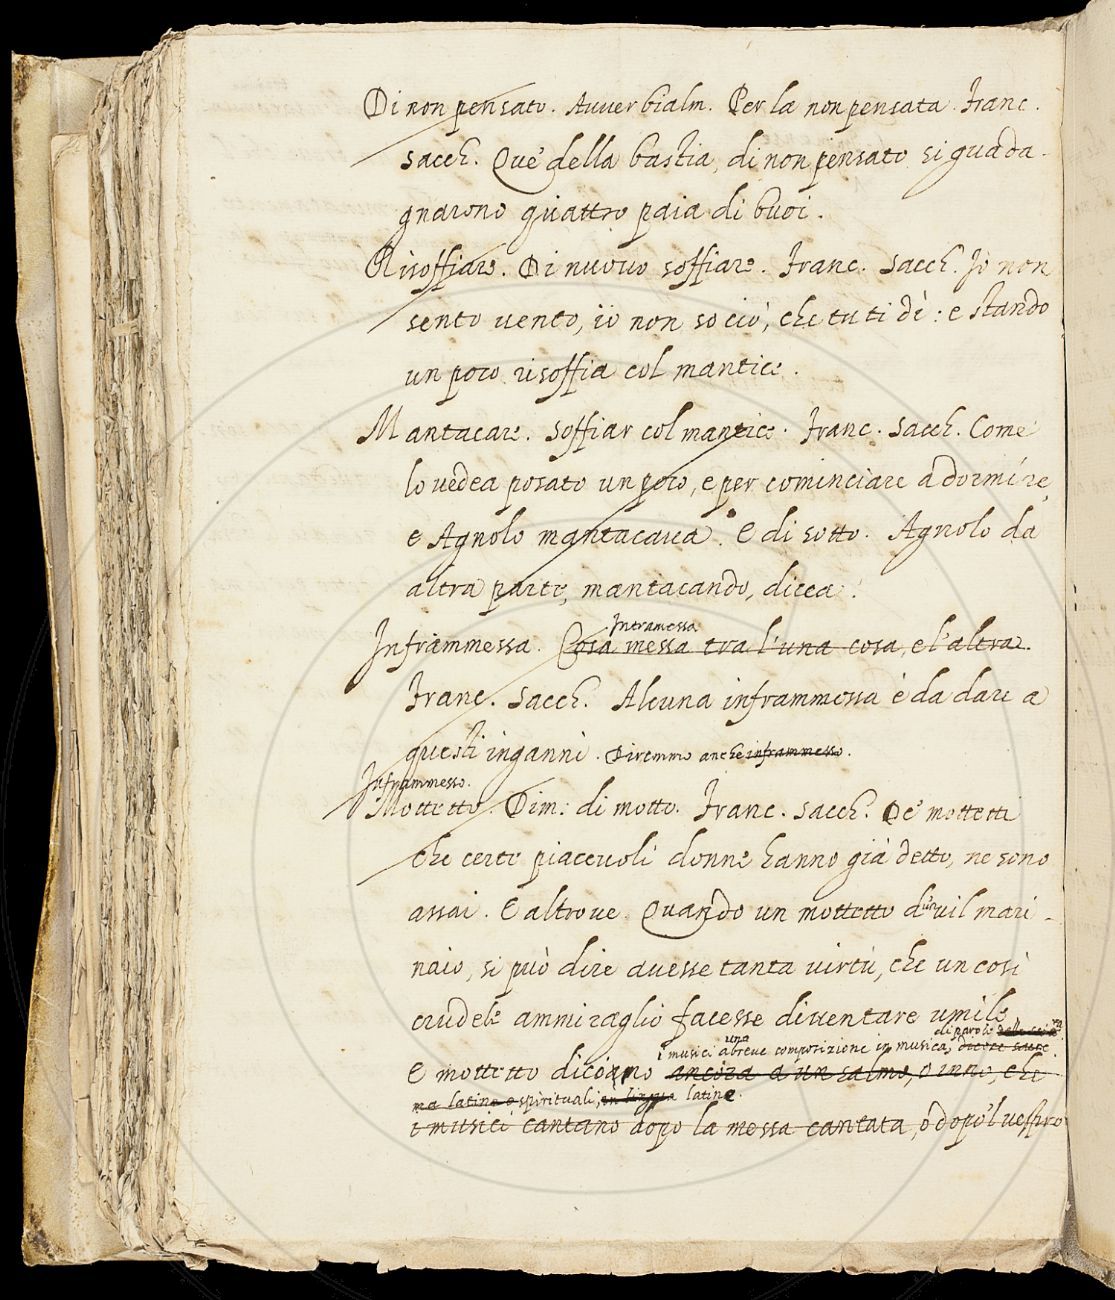 Di non pensato. Avverbialm. Per la non pensata. Franc.
Sacch. Que' della bastia, di non pensato si guada-
gnarono quattro paia di buoi.
Risoffiare. Di nuovo soffiare. Franc. Sacch. Io non
sento vento, io non so ciò, che tu ti dì: e stando
un poco risoffia col mantice.
Mantacare. Soffiar col mantice. Franc. Sacch. Come
lo vedea posato un poco, e per cominciare a dormire,
e Agnolo mantacava. E di sotto. Agnolo da
altra parte, mantacando, dicea.
Intramessa
Inframmessa. Cosa messa tra l'una cosa, e l'altra.
Franc. Sacch. Alcuna inframmessa è da dare a
questi inganni. Diremmo anche inframmesso.
Inframmesso.
Mottetto. Dim: di motto. Franc. Sacch. De' mottetti
che certe piacevoli donne hanno già detto, ne sono
assai. E altrove. Quando un mottetto d'un vil mari-
naio, si può dire avesse tanta virtù, che un così
crudele ammiraglio facesse diventare umile.
di parole
i musici una breve composizione in musica,
E mottetto dicono ancora a un salmo, o inno, che
latine spirituali, in lingua latina.
i musici cantano dopo la messa cantata, o dopo 'l vespro